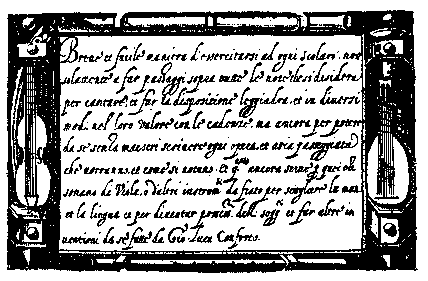 Breue et facile maniera d'essercitarsi ad ogni scolaro, non
solamente a far passaggi sopra tutte le note che si desidera
per cantare, et far la dispositione leggiadra, et in diuersi
modi nel loro valore con le cadenze, ma ancora per potere
da se senza maestri scriuere ogni opera, et aria passeggiata
che vorranno, et come si notano. Et q.sto ancora serue p. quei che
sonano di Viola, o d'altri instrom.ti da fiato per sciogliere la mano
et la lingua et per diuentar delli sogg.ti et far altre in
uentioni da se fatte da Gio. Luca Conforto.